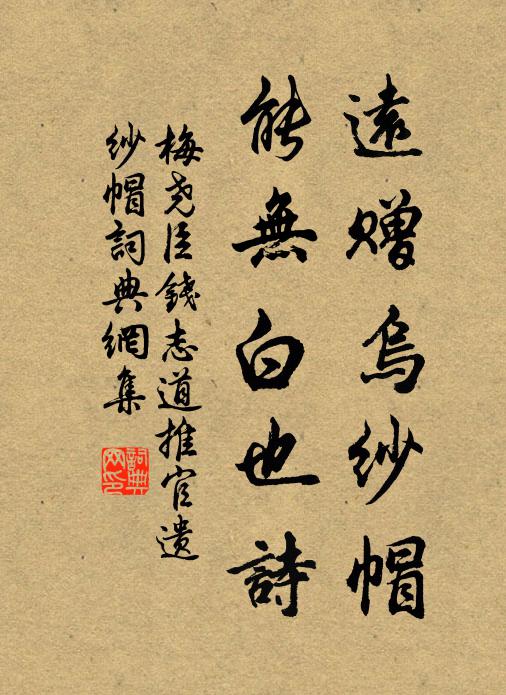 遠贈烏紗帽
能無白也詩
梅尭臣錢志道推官遺
紗帽詞典網集
詞典
网印